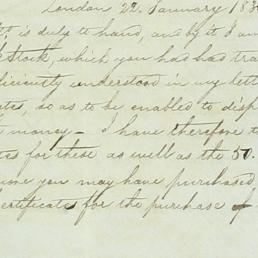 London 22. January 183
is duly to hand, and by it I am
Stock, which you had had tra
ficiently understood in my lett
ates, so as to be enabled to disp
money - I have therefore t
tes for these as well as the 50.
more you may have purchased
ertificate for the purchase of